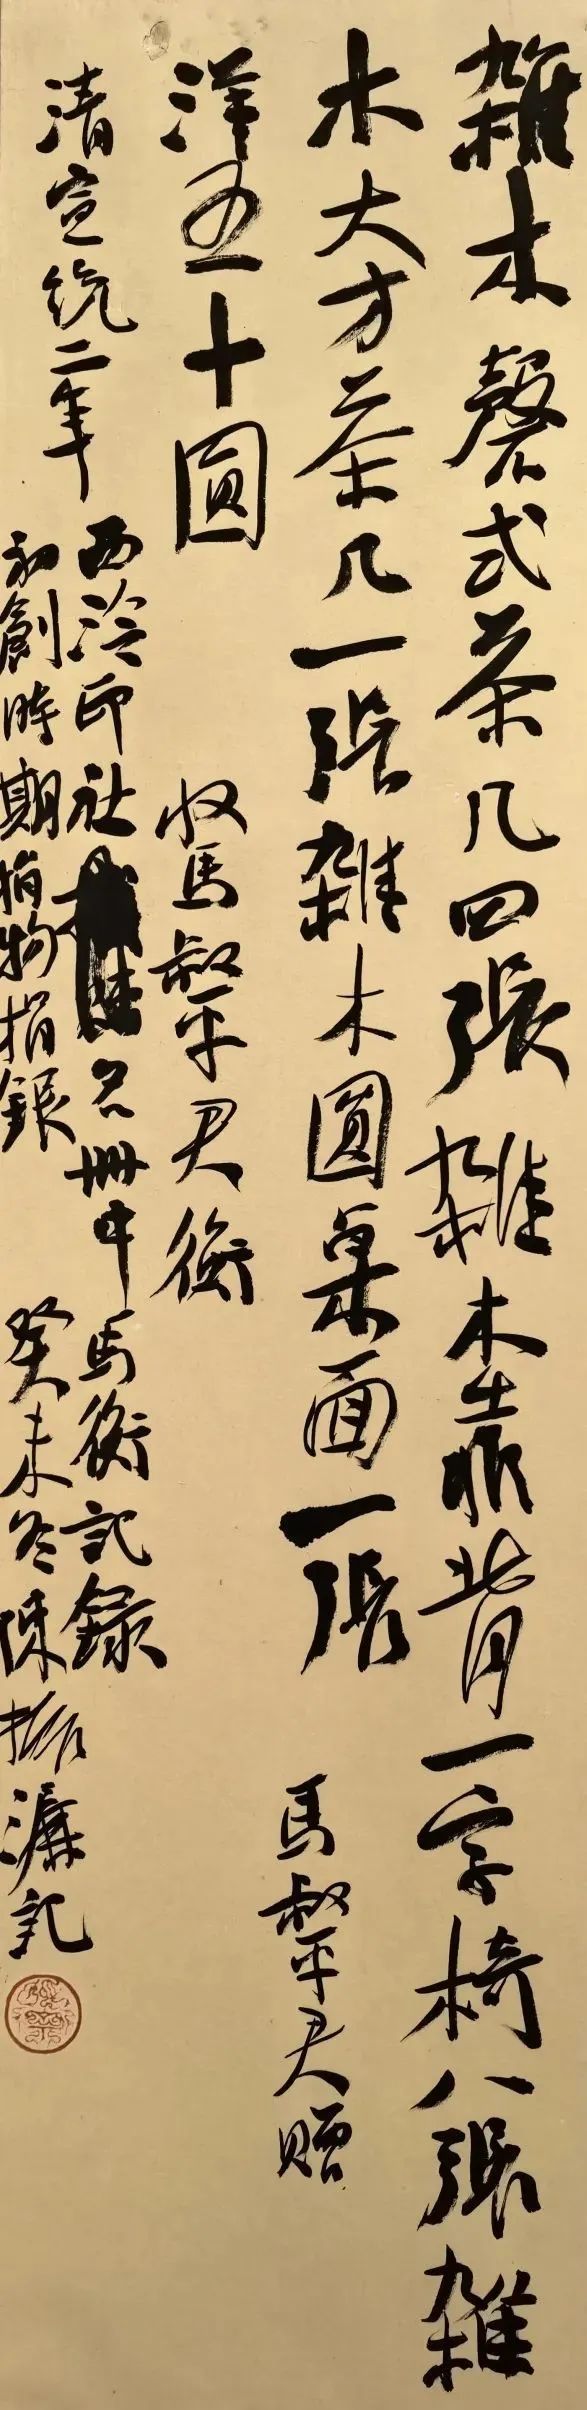 雜木磬式茶几四張雜木靠背一字椅八張雜
木大方茶几一張雜木圓桌面一張
馬叔平君贈
洋五十圓
收馬叔平君衡
清宣統二年
西泠印社名冊中馬衡記錄
初創時期捐物捐銀
癸未冬陳振濂記